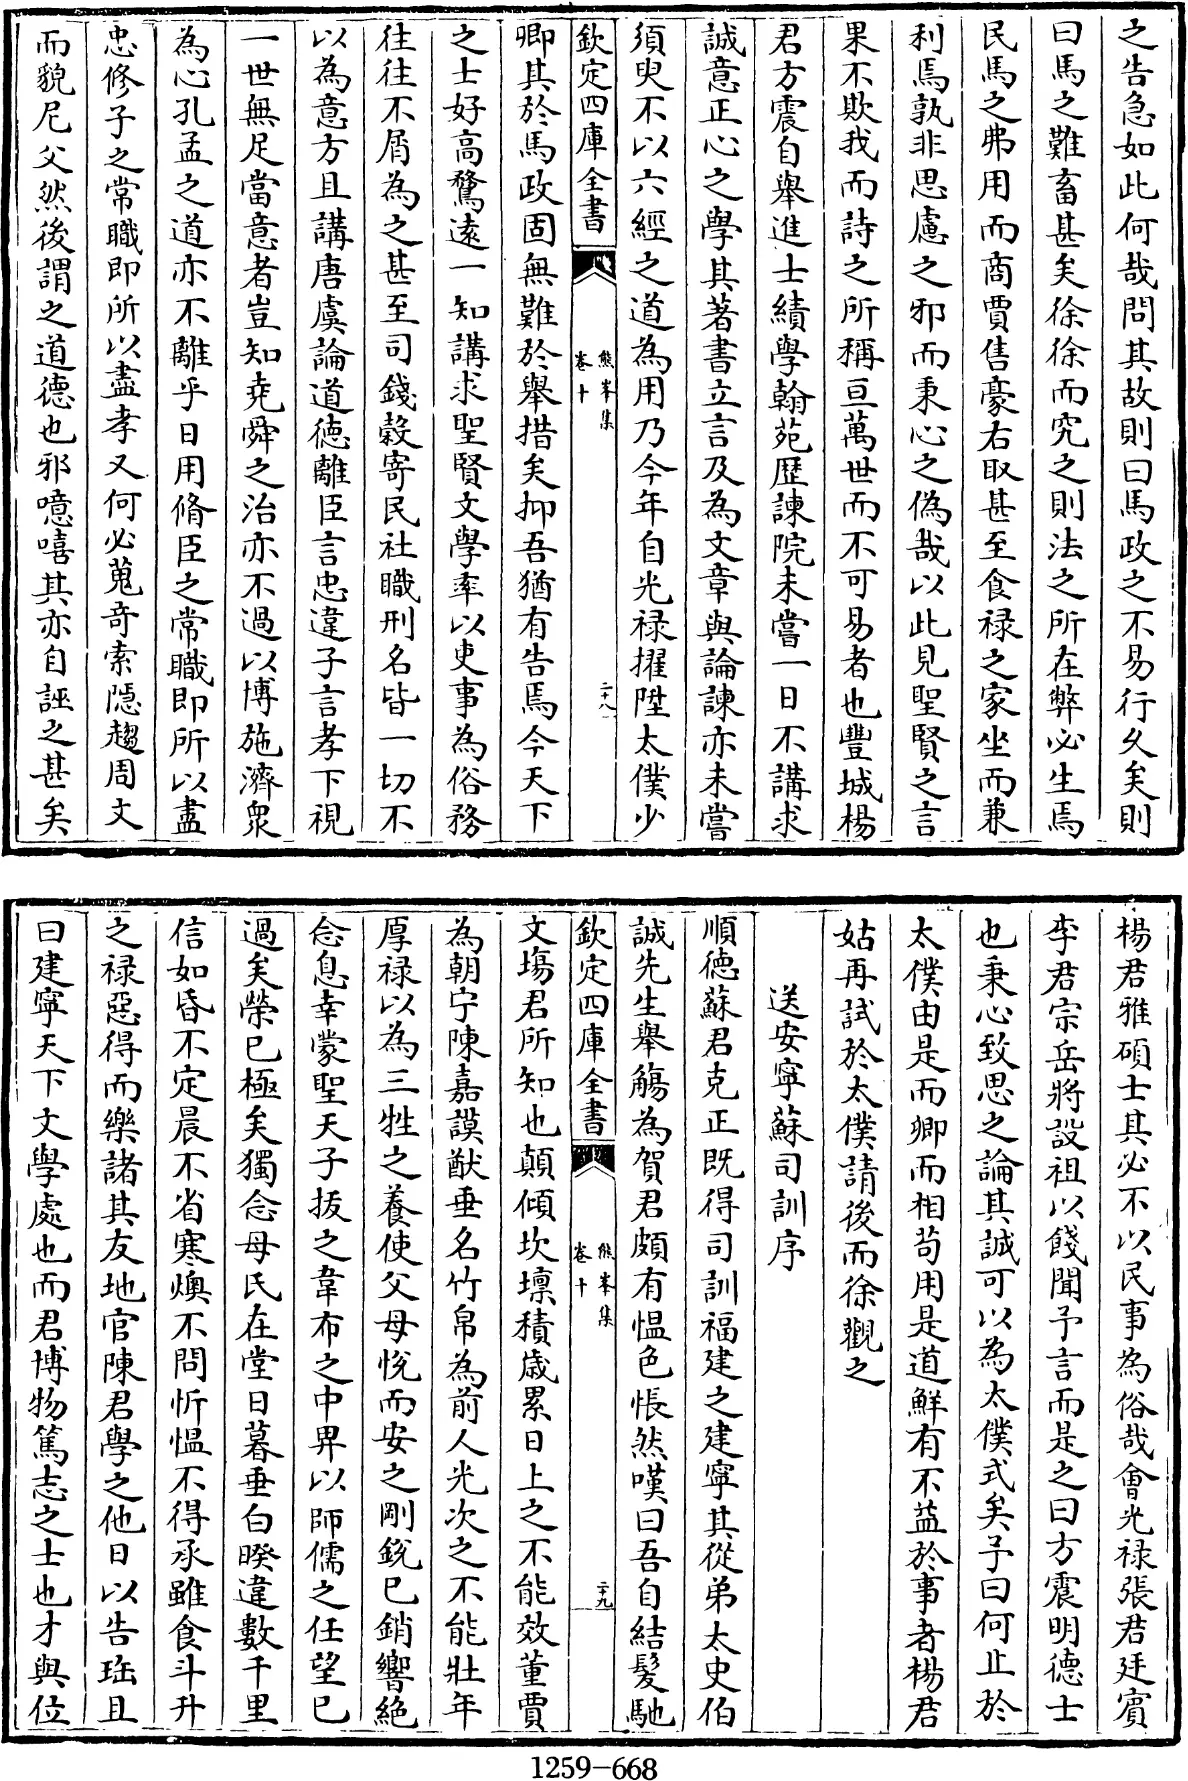 之告急如此何哉問其故則曰馬政之不易行久矣則
曰馬之難畜甚矣徐徐而究之則法之所在弊必生焉
民馬之弗用而商賈售豪右取甚至食祿之家坐而兼
利焉孰非思慮之邪而秉心之偽哉以此見聖賢之言
果不欺我而詩之所稱亘萬世而不可易者也豐城楊
君方震自舉進士績學翰苑歷諫院未嘗一日不講求
誠意正心之學其著書立言及為文章與論諫亦未嘗
須臾不以六經之道為用乃今年自光祿擢陞太僕少
欽定四庫全書
熊峯集
卷十
二十八
卿其於馬政固無難於舉措矣抑吾猶有告焉今天下
之士好高騖遠一知講求聖賢文學率以吏事為俗務
往往不屑為之甚至司錢穀寄民社職刑名皆一切不
以為意方且講唐虞論道德離臣言忠違子言孝下視
一世無足當意者豈知堯舜之治亦不過以博施濟衆
為心孔孟之道亦不離乎日用脩臣之常職即所以盡
忠修子之常職即所以盡孝又何必蒐竒索隱趨周文
而貌尼父然後謂之道德也邪噫嘻其亦自誣之甚矣
楊君雅碩士其必不以民事為俗哉會光祿張君廷賓
李君宗岳將設祖以餞聞予言而是之曰方震明德士
也秉心致思之論其誠可以為太僕式矣予曰何止於
太僕由是而卿而相苟用是道鮮有不益於事者楊君
姑再試於太僕請後而徐觀之
送安寧蘇司訓序
順德蘇君克正既得司訓福建之建寧其從弟太史伯
誠先生舉觴為賀君頗有慍色悵然嘆曰吾自結髮馳
欽定四庫全書
熊峯集
卷十
二十九
文場君所知也顛傾坎壈積歲累日上之不能效董賈
為朝宁陳嘉謨猷垂名竹帛為前人光次之不能壯年
厚祿以為三牲之養使父母悅而安之剛銳已銷響絕
念息幸蒙聖天子拔之韋布之中畀以師儒之任望已
過矣榮已極矣獨念母氏在堂日暮垂白暌違數千里
信如昏不定晨不省寒燠不問忻慍不得承雖食斗升
之祿惡得而樂諸其友地官陳君學之他日以告珤且
曰建寧天下文學處也而君博物篤志之士也才與位
1259-668